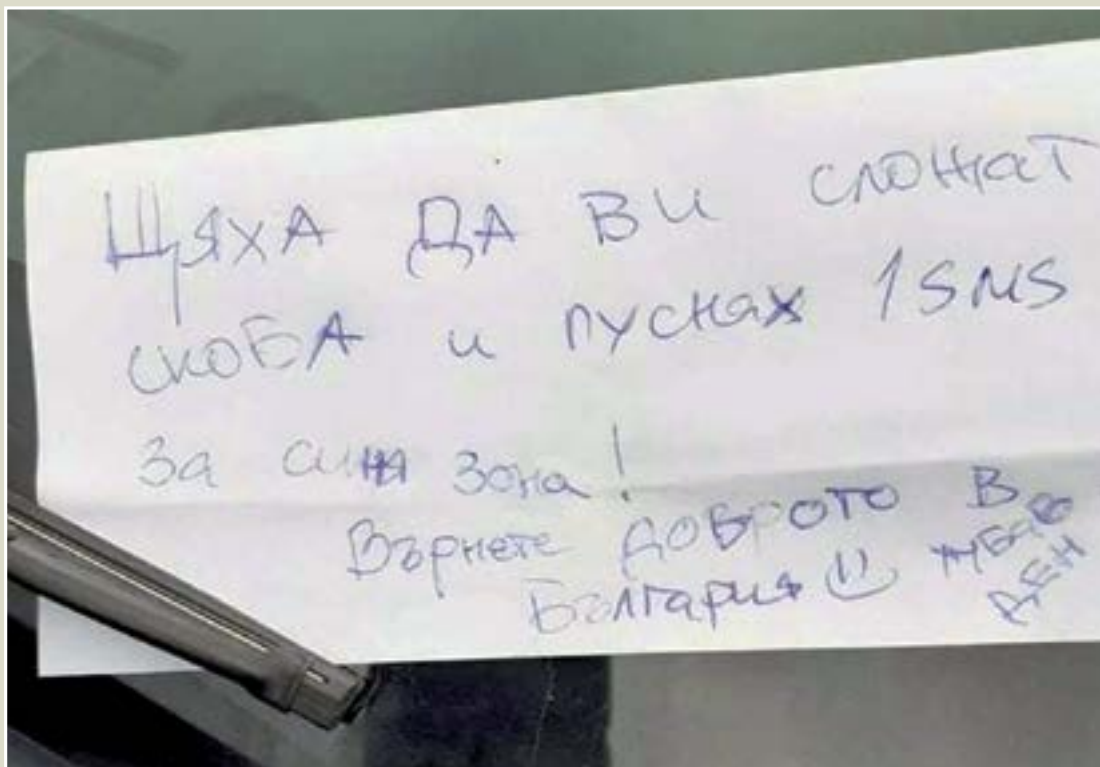 ЩЯХА ДА ВИ СЛОЖАТ
СКОБА И ПУСНАХ 1 SMS
За синя зона!
Върнете доброто в
България
ХУБАВ
ДЕН